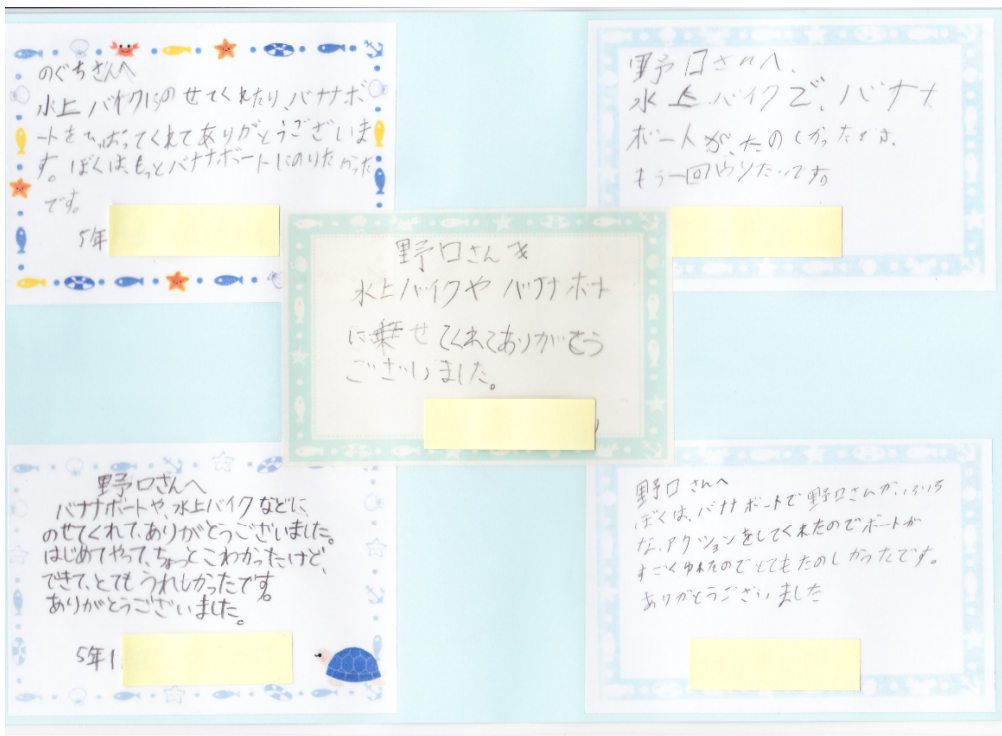 のぐちさんへ
水上バイクにのせてくれたり、バナナボ
ートをひっぱってくれてありがとうございま
す。ぼくは、もっとバナナボートにのりたかった
です。
5年
野口さんへ、
水上バイクで、バナナ
ボートが、たのしかったです。
もう一回やりたいです。
野口さんへ
水上バイクや バナナボート
に乗せてくれてありがとう
ございました。
野口さんへ
バナナボートや、水上バイクなどに、
のせてくれて、ありがとうございました。
はじめてやって、ちょっとこわかったけど、
できて、とてもうれしかったです。
ありがとうございました。
5年1
野口さんへ
ぼくは、バナナボートで野口さんが、いろいろ
な、アクションをしてくれたのでボートが
すごくゆれたのでとてもたのしかったです。
ありがとうございました